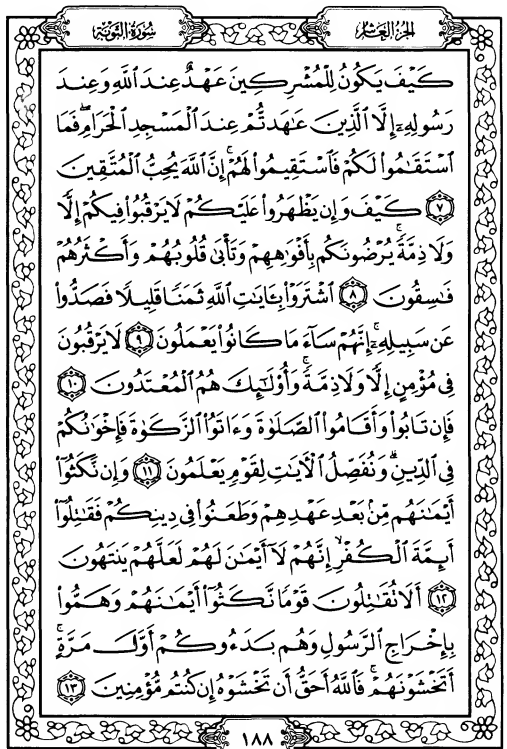 سُورَةُ التَّوْبَةِ
الجُزْءُ العَاشِرُ
كَيْفَ يَكُونُ لِلْمُشْرِكِينَ عَهْدٌ عِندَ اللَّهِ وَعِندَ
رَسُولِهِۦٓ إِلَّا الَّذِينَ عَٰهَدتُّمْ عِندَ الْمَسْجِدِ الْحَرَامِ ۖ فَمَا
اسْتَقَٰمُوا۟ لَكُمْ فَاسْتَقِيمُوا۟ لَهُمْ ۚ إِنَّ اللَّهَ يُحِبُّ الْمُتَّقِينَ
٧ كَيْفَ وَإِن يَظْهَرُوا۟ عَلَيْكُمْ لَا يَرْقُبُوا۟ فِيكُمْ إِلًّا
وَلَا ذِمَّةً ۚ يُرْضُونَكُم بِأَفْوَٰهِهِمْ وَتَأْبَىٰ قُلُوبُهُمْ وَأَكْثَرُهُمْ
فَٰسِقُونَ ٨ اشْتَرَوْا۟ بِـَٔايَٰتِ اللَّهِ ثَمَنًا قَلِيلًا فَصَدُّوا۟
عَن سَبِيلِهِۦٓ ۚ إِنَّهُمْ سَآءَ مَا كَانُوا۟ يَعْمَلُونَ ٩ لَا يَرْقُبُونَ
فِى مُؤْمِنٍ إِلًّا وَلَا ذِمَّةً ۚ وَأُو۟لَٰٓئِكَ هُمُ الْمُعْتَدُونَ ١٠
فَإِن تَابُوا۟ وَأَقَامُوا۟ الصَّلَوٰةَ وَءَاتَوُا۟ الزَّكَوٰةَ فَإِخْوَٰنُكُمْ
فِى الدِّينِ ۗ وَنُفَصِّلُ الْءَايَٰتِ لِقَوْمٍ يَعْلَمُونَ ١١ وَإِن نَّكَثُوٓا۟
أَيْمَٰنَهُم مِّنۢ بَعْدِ عَهْدِهِمْ وَطَعَنُوا۟ فِى دِينِكُمْ فَقَٰتِلُوٓا۟
أَئِمَّةَ الْكُفْرِ ۙ إِنَّهُمْ لَآ أَيْمَٰنَ لَهُمْ لَعَلَّهُمْ يَنتَهُونَ
١٢ أَلَا تُقَٰتِلُونَ قَوْمًا نَّكَثُوٓا۟ أَيْمَٰنَهُمْ وَهَمُّوا۟
بِإِخْرَاجِ الرَّسُولِ وَهُم بَدَءُوكُمْ أَوَّلَ مَرَّةٍ ۚ
أَتَخْشَوْنَهُمْ ۚ فَاللَّهُ أَحَقُّ أَن تَخْشَوْهُ إِن كُنتُم مُّؤْمِنِينَ ١٣
١٨٨